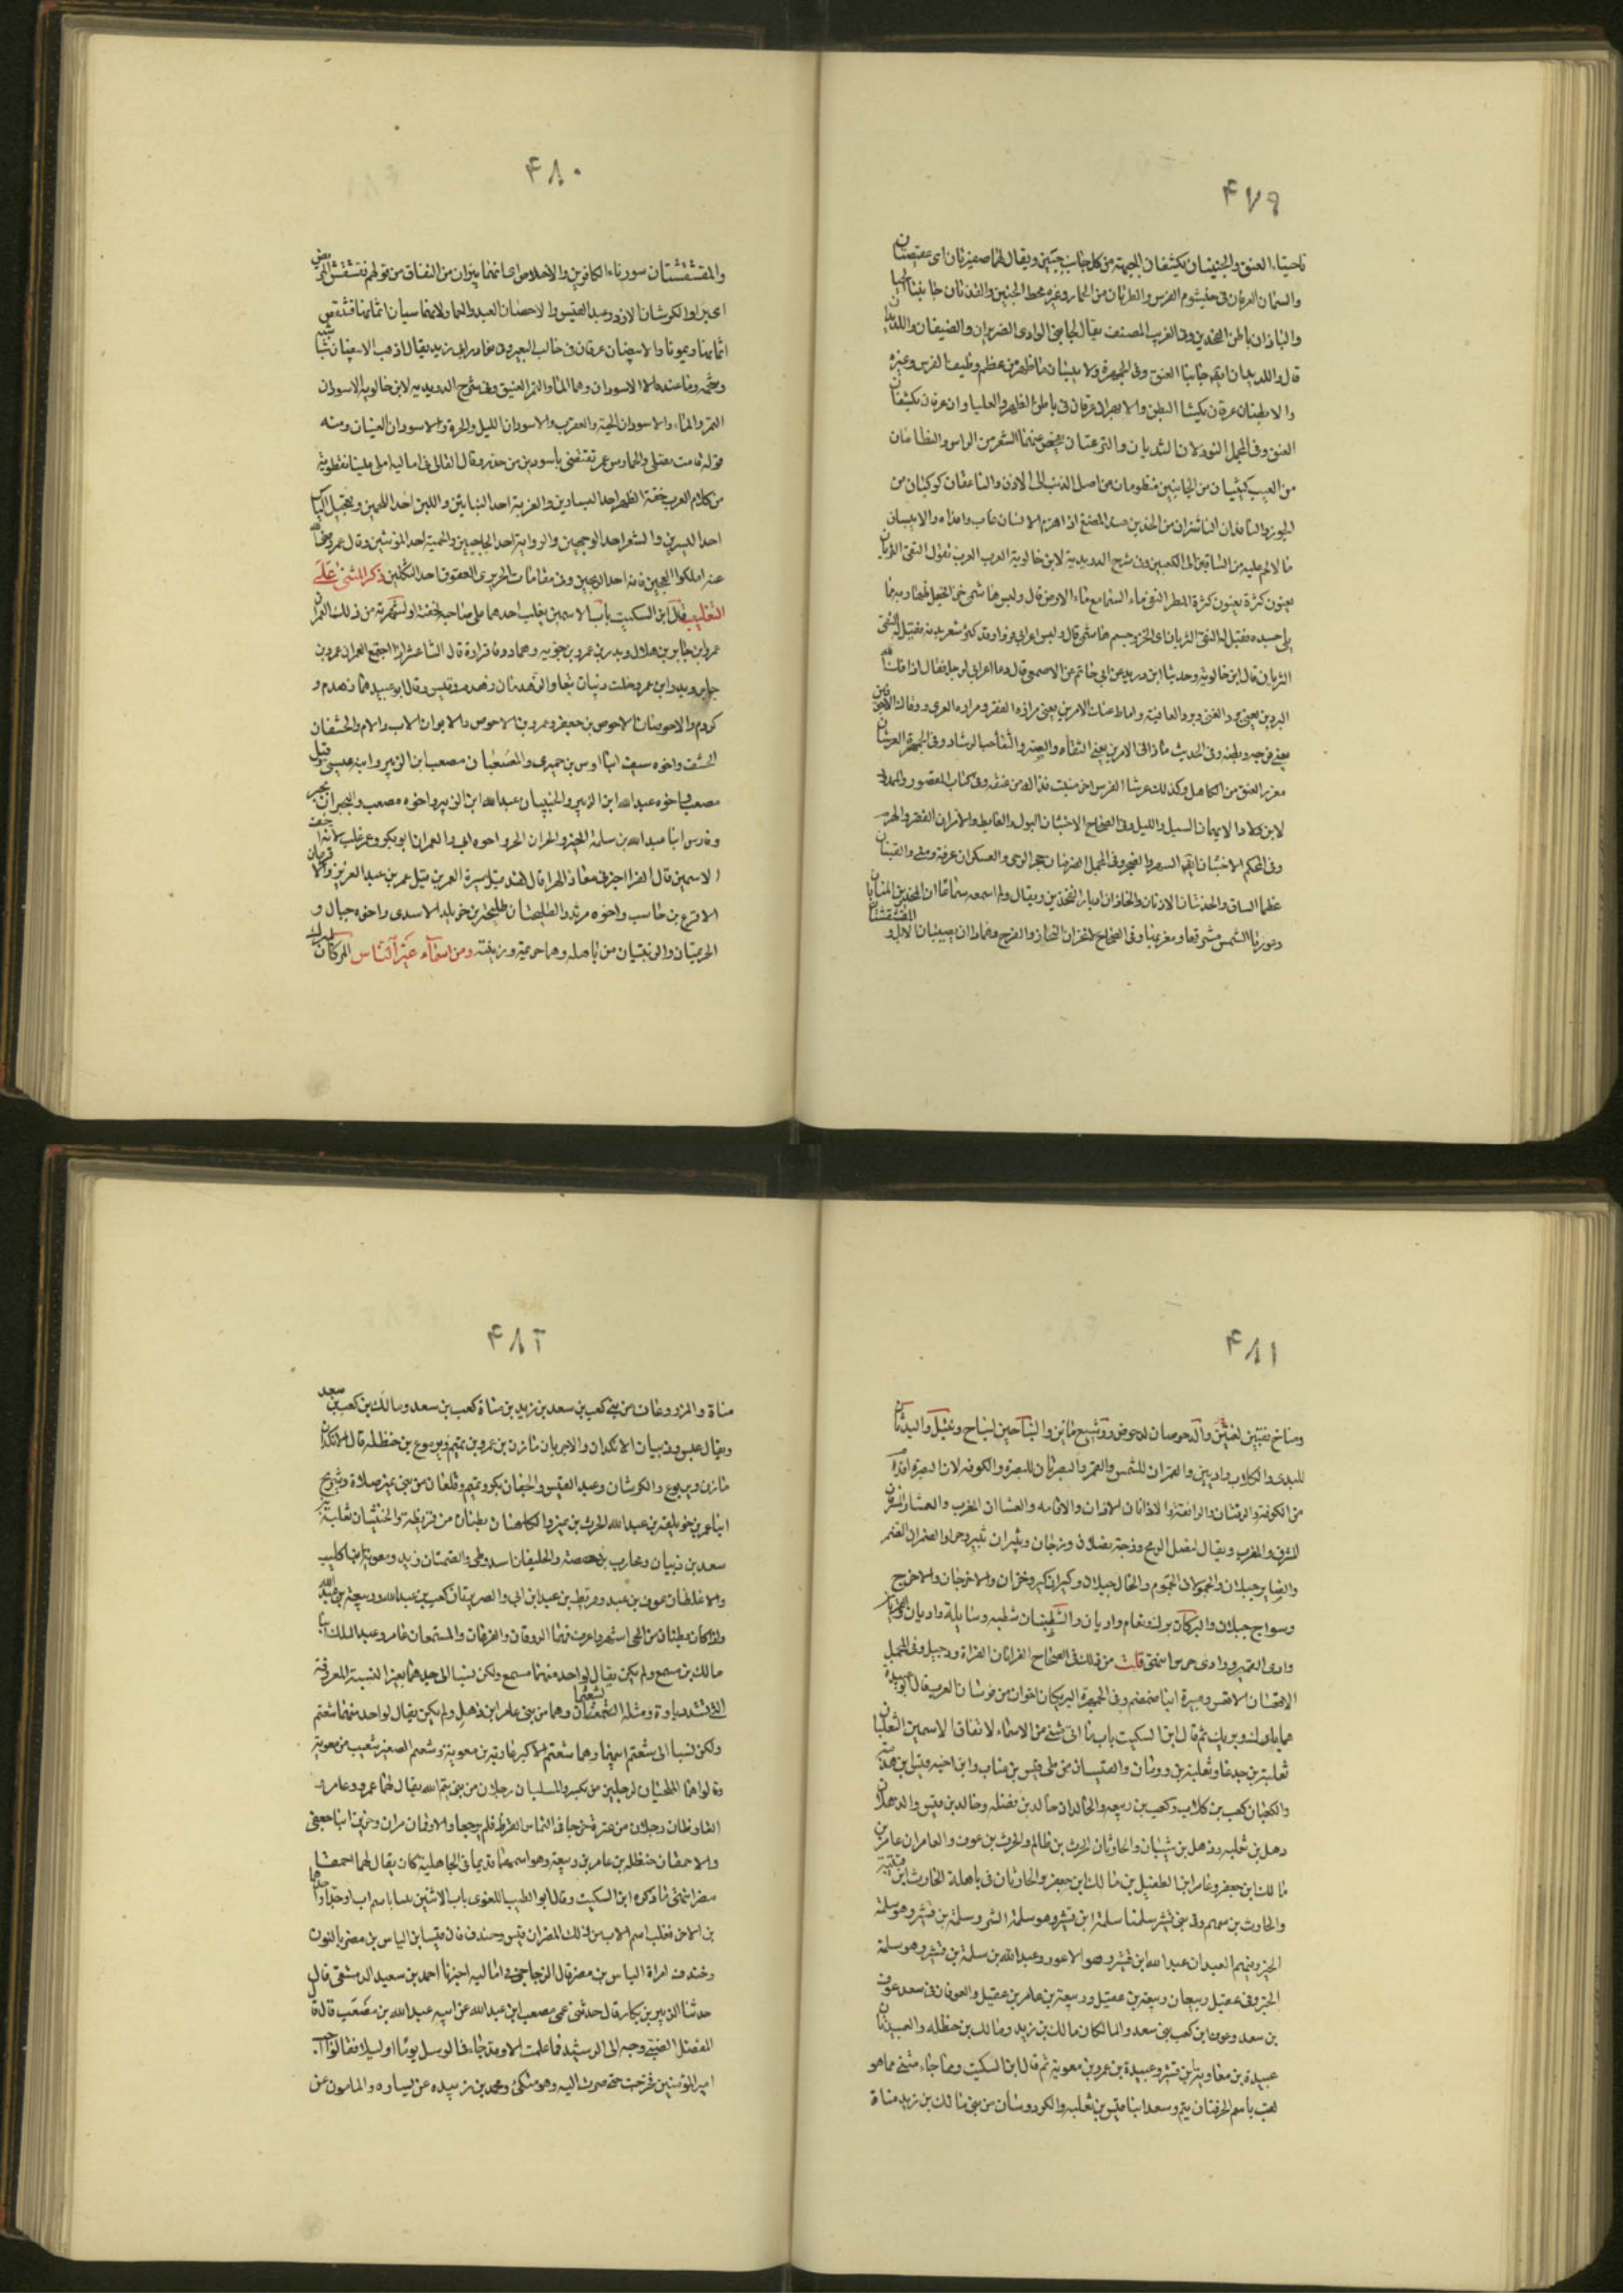 ٤٧٩
ناحيتا العنق والجبينان يكتنفان الجبهة من كل جانب جبين ويقال لهما ضفيرتان اى عقيصتان
والسمان العرقان فى خيشوم الفرس والطرتان من الحمار وغيره مخط الجنبين والقذتان جانبا الحيا
والبادان باطن الفخذين وفى الغريب المصنف يقال لجانبى الوادى الضريران والضيفان واللديدان
قال واللديدان ايضا جانبا العنق وفى الجمهرة والايبسان ما ظهر من عظم وظيف الفرس وغيره
والابطنان عرقان يكتنفا البطن والابهران عرقان فى باطن الظهر والعلباوان عرقان يكتنفان
العنق وفى المجمل الفودلان الثديان والنزعتان ينحسر عنهما الشعر من الراس والنظامان
من الضب كشيتان من الجانبين منظومتان من اصل الذنب الى الاذن والناعقان كوكبان من
الجوزا والناهدان الناشزان من الخدين عند المضغ اذا هرم الانسان غاب وهذاه والايبسان
ما لا لحم عليه من الساقين الى الكعبين وفى شرح الدريدية لابن خالويه العرب تقول التقى الثريان
يعنون كثرة يعنون كثرة المطر التقى ماء السماء مع ماء الارض قال ولبس هاشمى خزا فجعل ظهارته مما
يلى جسده فقيل له التقى الثريان اى الخز وجسم هاشمى قال ولبس اعرابى فروا وقد كثر شعر بدنه فقيل له التقى
الثريان قال ابن خالويه وحدثنا ابن دريد عن ابى حاتم عن الاصمعى قال دعا اعرابى لرجل فقال اذاقك الله
البردين يعنى برد الغنى وبرد العافية واماط عنك الامرين يعنى مرارة الفقر ومرارة العرى ووقاك الاجوفين
يعنى فرجه وبطنه وفى الحديث ماذا فى الامرين يعنى الثفاء والصبر والثفا حب الرشاد وفى الجمهرة العرشان
مغرز العنق من الكاهل وكذلك عرشا الفرس اخر منبت قذاله من عنقه وفى كتاب المقصور والممدود
لابن ولاد الايهمان السيل والليل وفى الصحاح الاخبثان البول والغايط والامران الفقر والهرم
وفى المحكم الاخبثان ايضا السهر والضجر وفى المجمل الضرتان حجر الرحى والعسكران عرفة ومنى والقينان
عظما الساق والحذنتان الاذنان والحاذان ادبار الفخذين ويقال ولم اسمعه سماعا ان
ودعوتا الشمس مشرقها ومغربها وفى الصحاح
٤٨٠
والمقشقشتان سورتا الكافرين والاخلاص اى انهما يبريان من النفاق من قولهم تقشقش المريض
اى برا والكرشان الازد وعبد القيس والاحصان العبد والحمار لانهما يماشيان اثمانهما حتى
اثمانهما ويموتا والابيضان عرقان فى حالب البعير وفى نوادر ابى زيد يقال ذهب الابيضان شبابه
وشحمه وما عنده الا الاسودان وهما الماء والتمر العتيق وفى شرح الدريدية لابن خالويه الاسودان
التمر والماء والاسودان الحية والعقرب والاسودان الليل والحرة والاسودان العينان ومنه
قوله قامت تصلى والخمار من عمر تقصنى باسودين من حذر وقال القالى فى اماليه املى علينا نفطويه
من كلام العرب خفة الظهر احد اليسارين والغربة احد السباءين واللبن احد اللحمين وتعجيل الياس
احد اليسرين والشعر احد الوجهين والراوية احد الهاجيين والحمية احد الموتتين وقال عمر رضى الله
عنه املكوا العجين فانه احد الريعين وفى مقامات الحريرى العقوق احد الثكلين ذكر المثنى على
التغليب قال ابن السكيت باب الاسمين يغلب احدهما على صاحبه لخفته او لشهرته من ذلك العمران
عمرو بن جابر بن هلال وبدر بن عمرو بن جوية وهما روقا فزارة قال الشاعر اذا اجتمع العمران عمرو بن
جابر وبدر بن عمرو خلت ذبيان تبعا والزهدمان زهدم وقيس وقال ابو عبيد هما زهدم و
كردم والاحوصان الاحوص بن جعفر وعمرو بن الاحوص والابوان الاب والام والحنتفان
الحنتف واخوه سيف ابنا اوس بن حميرى والمصعبان مصعب ابن الزبير وابنه عيسى وقيل
مصعب واخوه عبد الله ابن الزبير والخبيبان عبد الله ابن الزبير واخوه مصعب والبجيران بجير
وفارس ابنا عبد الله بن سلمة الخير والحران الحر واخوه ابى والعمران ابو بكر وعمر غلب لانه اخف
الاسمين قال الفرا اخبرنى معاذ الهرا قال لقد قيل سيرة العمرين قبل عمر بن عبد العزيز والاقرعان
الاقرع بن حابس واخوه مرثد والطليحتان طليحة بن خويلد الاسدى واخوه حبال و
الحزيمتان والزبينتان من باهلة وهما حزيمة وزبينة ومن اسماء غير الناس المركان
٤٨١
وصانع نفيين لعنيق والدحرضان لدحرض ووشيع ماءين والنباحين لنباح وغيل والبديان
للبدى والكلاب واديين والقمران للشمس والقمر والبصرتان للبصرة والكوفة لان البصرة اقدم
من الكوفة والرقتان والرافقة والاذانان الاذان والاقامه والعشاان المغرب والعشا والمشرقان
المشرق والمغرب ويقال لنصل الرمح وزجه نصلان وزجان وثبيران ثبير وحرا والضمران الضمر
والضاير جبلان والحمولان الحموم والخال جبلان وكيران كير وخزان والاخرجان والاخرج
وسواج جبلان والبركان برك ونعام واديان والشطبتان شطبه وسايلة واديان
وادى القمير ووادى حرس اسنتى قلت من ذلك فى الصحاح الفراتان الفراة ودجيل وفى المجمل
الاقعسان الاقعس وهبيرة ابنا ضمضم وفى الجمهرة البريكان اخوان من فرسان العرب قال ابو عبيدة
هما بارك وبريك ثم قال ابن السكيت باب ما اتى مثنى من الاسماء لاتفاق الاسمين الثعلبتان
ثعلبة بن جدعا وثعلبة بن رومان والقيسان من طى قيس بن عتاب وابن اخيه قيس بن هذمة
والكعبان كعب بن كلاب وكعب بن ربيعه والخالدان خالد بن نضله وخالد بن قيس والذهلان
ذهل بن ثعلبه وذهل بن شيبان والحارثان الحرث بن ظالم والحرث بن عوف والعامران عامر بن
مالك ابن جعفر وعامر ابن الطفيل بن مالك ابن جعفر والحارثان فى باهلة الحارث ابن قتيبة
والحارث بن سهم وفى بنى قشير سلمتا سلمة ابن قشير وهو سلمة الشر وسلمة بن قشير وهو سلمة
الخير وفيهم العبدان عبد الله ابن قشير وهو الاعور وعبد الله بن سلمة بن قشير وهو سلمة
الخير وفى عقيل ربيعتان ربيعة بن عقيل وربيعة بن عامر بن عقيل والعوفان فى سعد عوف
بن سعد وعوف ابن كعب بنى سعد والمالكان مالك بن زيد ومالك بن حنظله والعبيدتان
عبيدة بن معاوية بن قشير وعبيدة بن عمرو بن معوية ثم قال ابن السكيت ومما جاء مثنى مما هو
لقب باسم الحرقتان تيم وسعد ابنا قيس بن ثعلبه والكردوسان من بنى مالك بن زيد مناة
٤٨٢
مناة والمزروعان من بنى كعب بن سعد بن زيد بن مناة كعب بن سعد ومالك بن كعب بن سعد
ويقال عبس وذبيان الانكدان والاجربان مازن بن عمرو بن تميم ويربوع بن حنظله قال الانكدان
مازن ويربوع والكرشان وعبد القيس والجفان بكر وتميم وقلعان من بنى نمير صلاة وشريح
ابنا عمرو بن خويلفة بن عبد الله الحرث بن نمير والكاهنان بطنان من قريظة والخنثيان ثعلبة بن
سعد بن ذبيان ومحارب بن خصفة والحليفان اسد وطى والصمتان زيد ومعوية ابنا كليب
والاغلظان عوف بن عبد وقريط بن عبد ابن ابى والصريرتان كعب بن عبد الله وربيعة بن عبد الله
واذا كان بطنان من الحى اشهر واعرف فهما الروقان والفرعان والمسمعان عامر وعبد الملك ابنا
مالك بن مسمع ولم يكن يقال لواحد منهما مسمع ولكن نسبا الى جدهما بغير النسبة المعروفة
التى تشدد ياوه ومثله الشعثمان وهما من بنى عامر ابن ذهل ولم يكن يقال لواحد منهما شعثم
ولكن نسبا الى شعثم ابيهما وهما شعثم الاكبر حارثة بن معوية وشعثم الصغير شعيب بن معوية
وقالوا هما الملحتيان لرجلين من بكر والمسلبان رجلان من بنى تيم الله يقال لهما عمرو وعامر و
القارظان رجلان من عنزة خرجا فى التماس القرظ فلم يرجعا والارقمان مران وحزين ابنا جعفى
والاحمقان حنظله بن عامر بن ربيعة وهو اسمهما قديما فى الجاهلية كان يقال لهما احمقا
مضر انتهى ما ذكره ابن السكيت وقال ابو الطيب اللغوى باب الاثنين يسميا باسم اب او جد او احدهما
بن الاخر فغلب اسم الاب من ذلك المضران قيس وخندف فان قيسا بن الياس بن مضر بالنون
وخندف امراة الياس بن مضر قال الزجاجى فى اماليه اخبرنا احمد بن سعيد الدمشقى قال
حدثنا الزبير بن بكار قال حدثنى عمى مصعب ابن عبد الله عن ابيه عبد الله بن مصعب قال قال
المفضل الضبى وجه الى الرشيد فما علمت الا وقد جاءنى الرسل يوما او ليلا فقالوا اجب
امير المومنين فخرجت حتى صرت اليه وهو متكئ ومحمد بن زبيده عن يساره والمامون عن